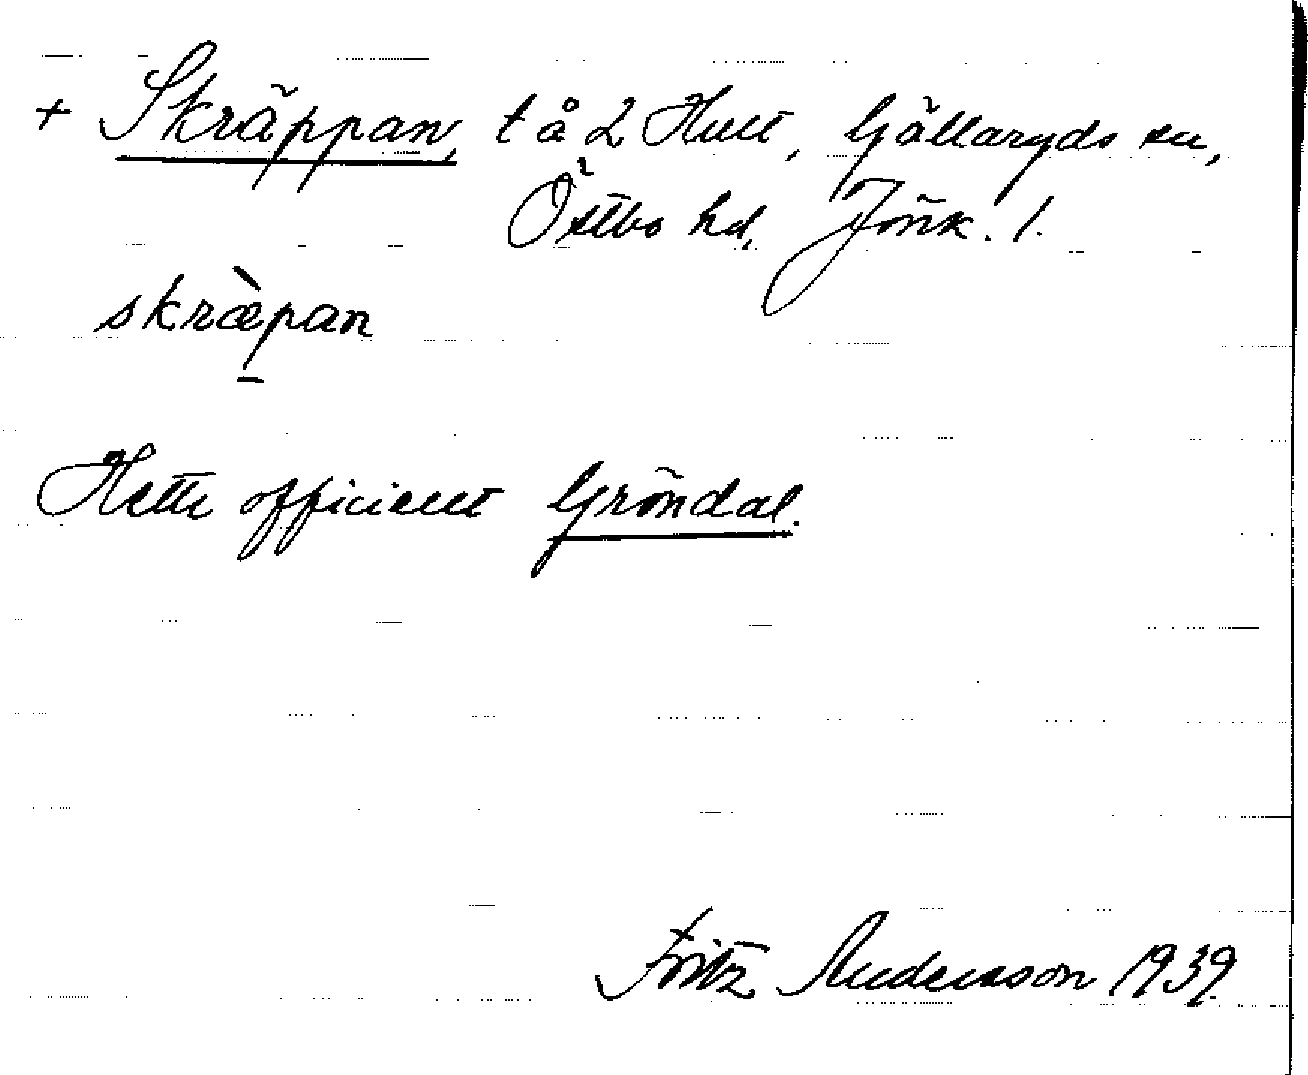 + Skräppan, t å 2 Hult, Gällaryds sn,
Östbo hd, Jönk. l.
skræ̀pan
Hette officiellt Gröndal.
Fritz Andersson 1939.